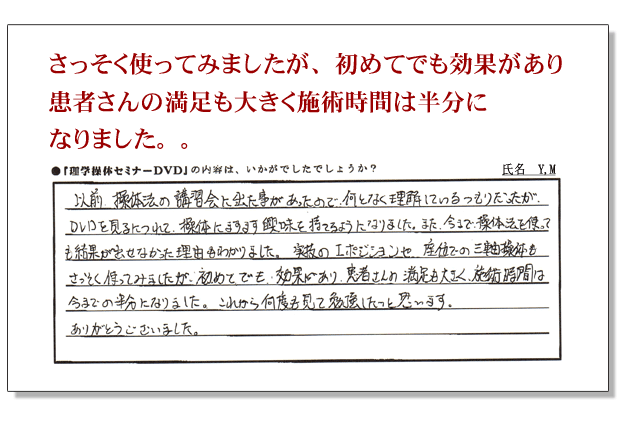 さっそく使ってみましたが、初めてでも効果があり
患者さんの満足も大きく施術時間は半分に
なりました。。
●『理学操体セミナーDVD』の内容は、いかがでしたでしょうか？
氏名　Y.M
以前、操体法の講習会に出た事があったので、何となく理解しているつもりだったが、
DVDを見るにつれて、操体にますます興味を持てるようになりました。また、今まで操体法を使って
も結果が出せなかった理由もわかりました。実技のIポジションや、座位での三軸操体も
さっそく使ってみましたが、初めてでも、効果があり、患者さんの満足も大きく、施術時間は
今までの半分になりました。これから何度も見て勉強したいと思います。
ありがとうございました。